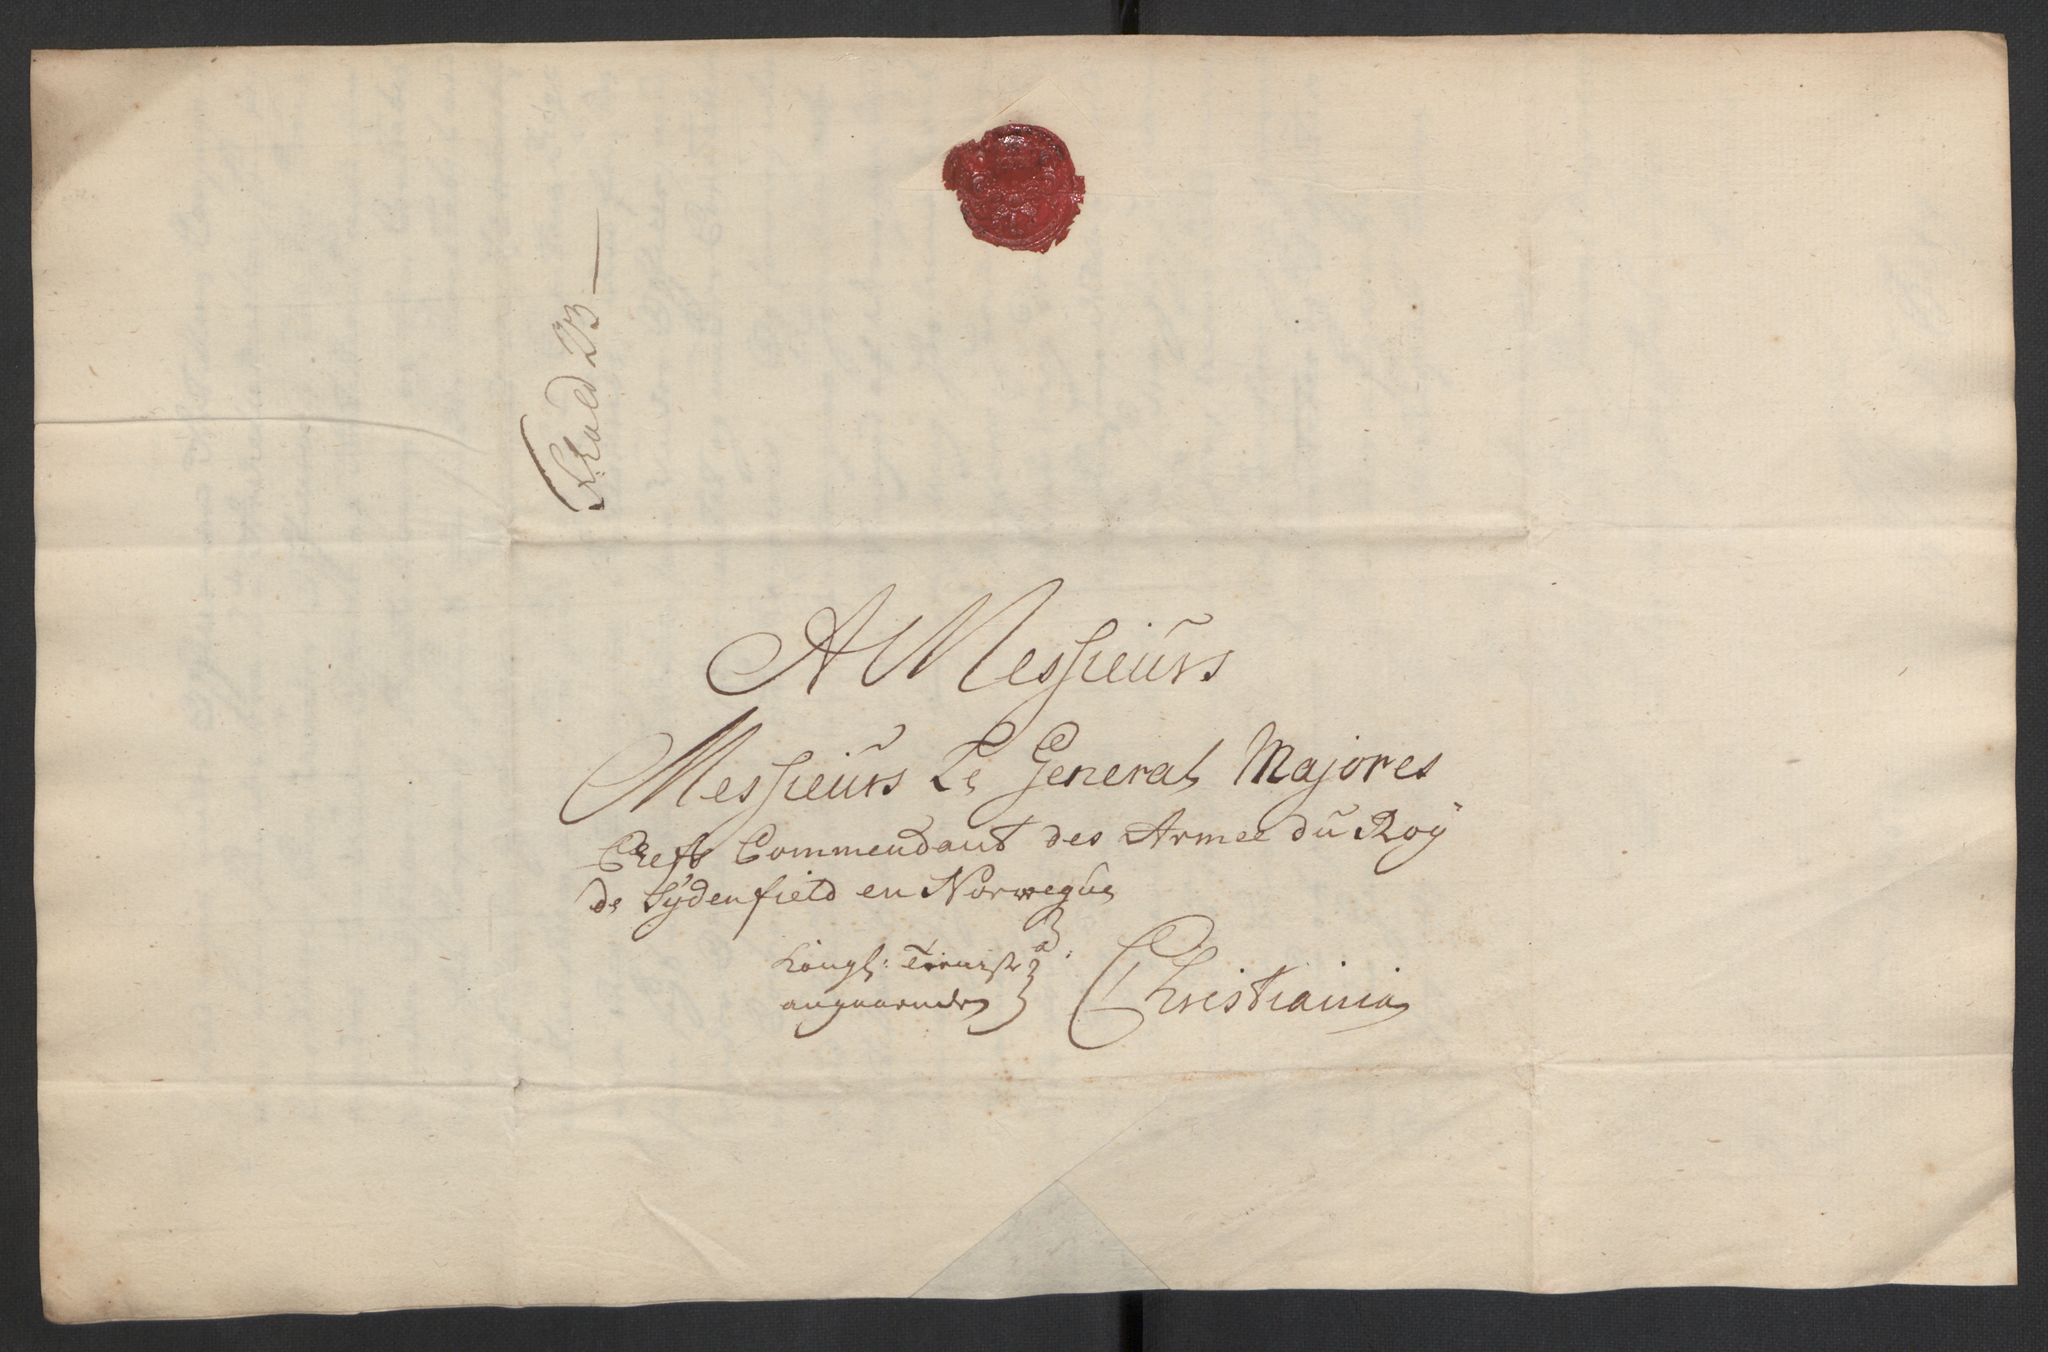 Frhald 23
A Messieurs
Messieurs Le General Majores
Chefs Commendant des Armee du Roÿ
de Sydenfield en Norwegue
Kongl: Tieniste
angaaende
a
Christiania